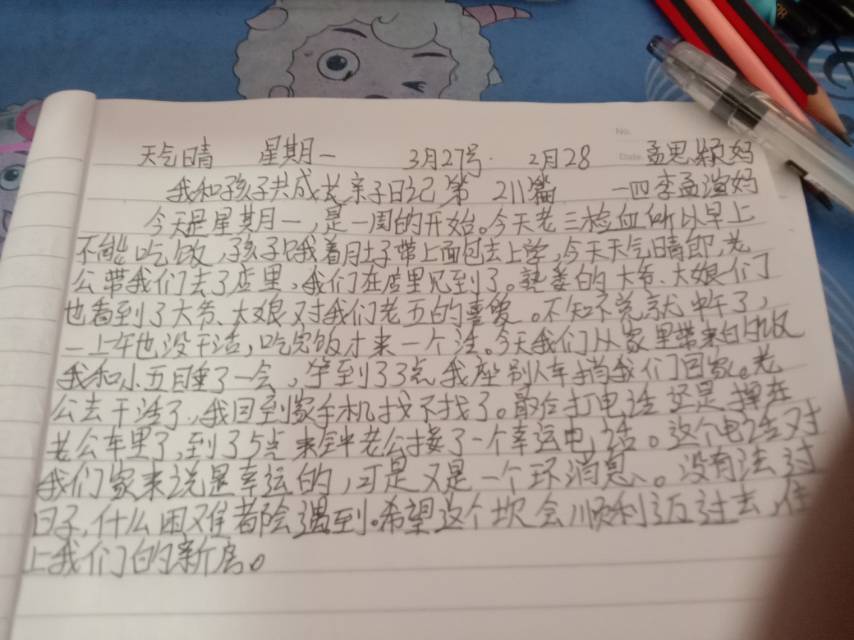 No.
Date
天气晴 星期一 3月27号. 2月28 孟思颖妈
我和孩子共成长亲子日记第 211篇 一四李孟渲妈
今天是星期一,是一周的开始。今天老三检血所以早上
不能吃饭,孩子只哦着肚子带上面包去上学,今天天气晴朗,老
公带我们去了店里,我们在店里见到了。熟悉的大爷、大娘们了
也看到了大爷、大娘对我们老五的喜爱。不知不觉就中午了,
一上午也没干活,吃完饭才来一个活。今天我们从家里带来的饭
我和小五睡了一会,等到了3点我座别人车捎我们回家。老
公去干活了,我回到家手机找不找了。最后打电话还是掉在
老公车里了,到了5点来钟老公接了一个幸运电话。这个电话对
我们家来说是幸运的,可是又是一个坏消息、。没有法过
日子,什么困难都会遇到。希望这个坎会顺利迈过去,住
上我们的新房。